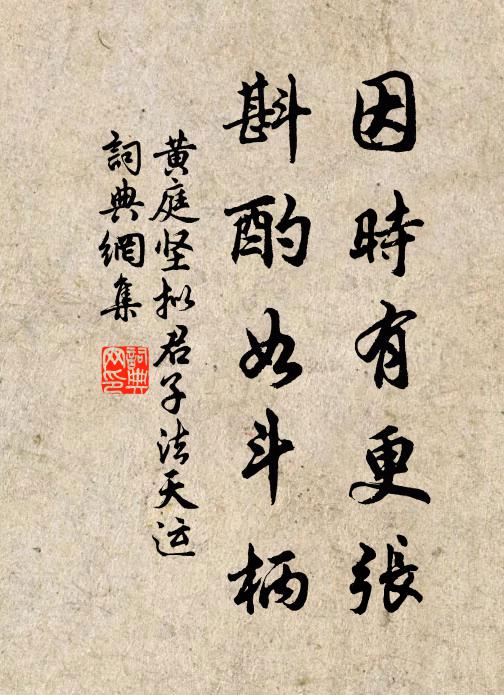 因時有更張
斟酌如斗柄
黄庭坚拟君子法天运
詞典網集
詞典网印